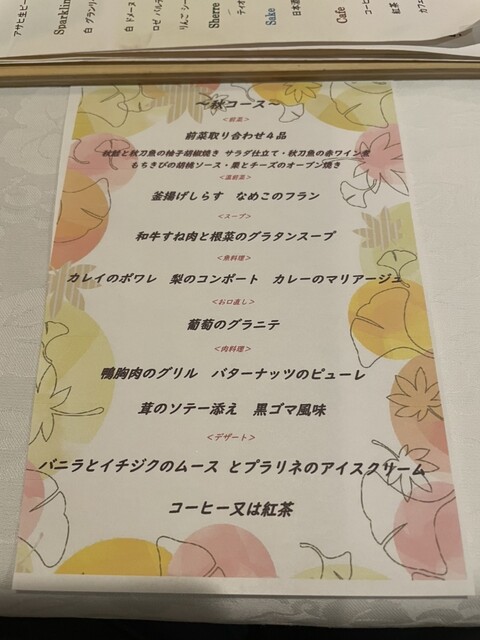 アサヒ生ビー
Sparklin
白 グランリー
白 ドメーヌ
ロゼ バルデ
りんご シー
Sherre
ティオ
Sake
日本酒
Cafe
コーヒ
紅茶
カフェ
～秋コース～
<前菜>
前菜取り合わせ４品
秋鮭と秋刀魚の柚子胡椒焼き サラダ仕立て・秋刀魚の赤ワイン煮
もちきびの胡桃ソース・栗とチーズのオーブン焼き
<温前菜>
釜揚げしらす なめこのフラン
<スープ>
和牛すね肉と根菜のグラタンスープ
<魚料理>
カレイのポワレ 梨のコンポート カレーのマリアージュ
<お口直し>
葡萄のグラニテ
<肉料理>
鴨胸肉のグリル バターナッツのピューレ
茸のソテー添え 黒ゴマ風味
<デザート>
バニラとイチジクのムース とプラリネのアイスクリーム
コーヒー又は紅茶